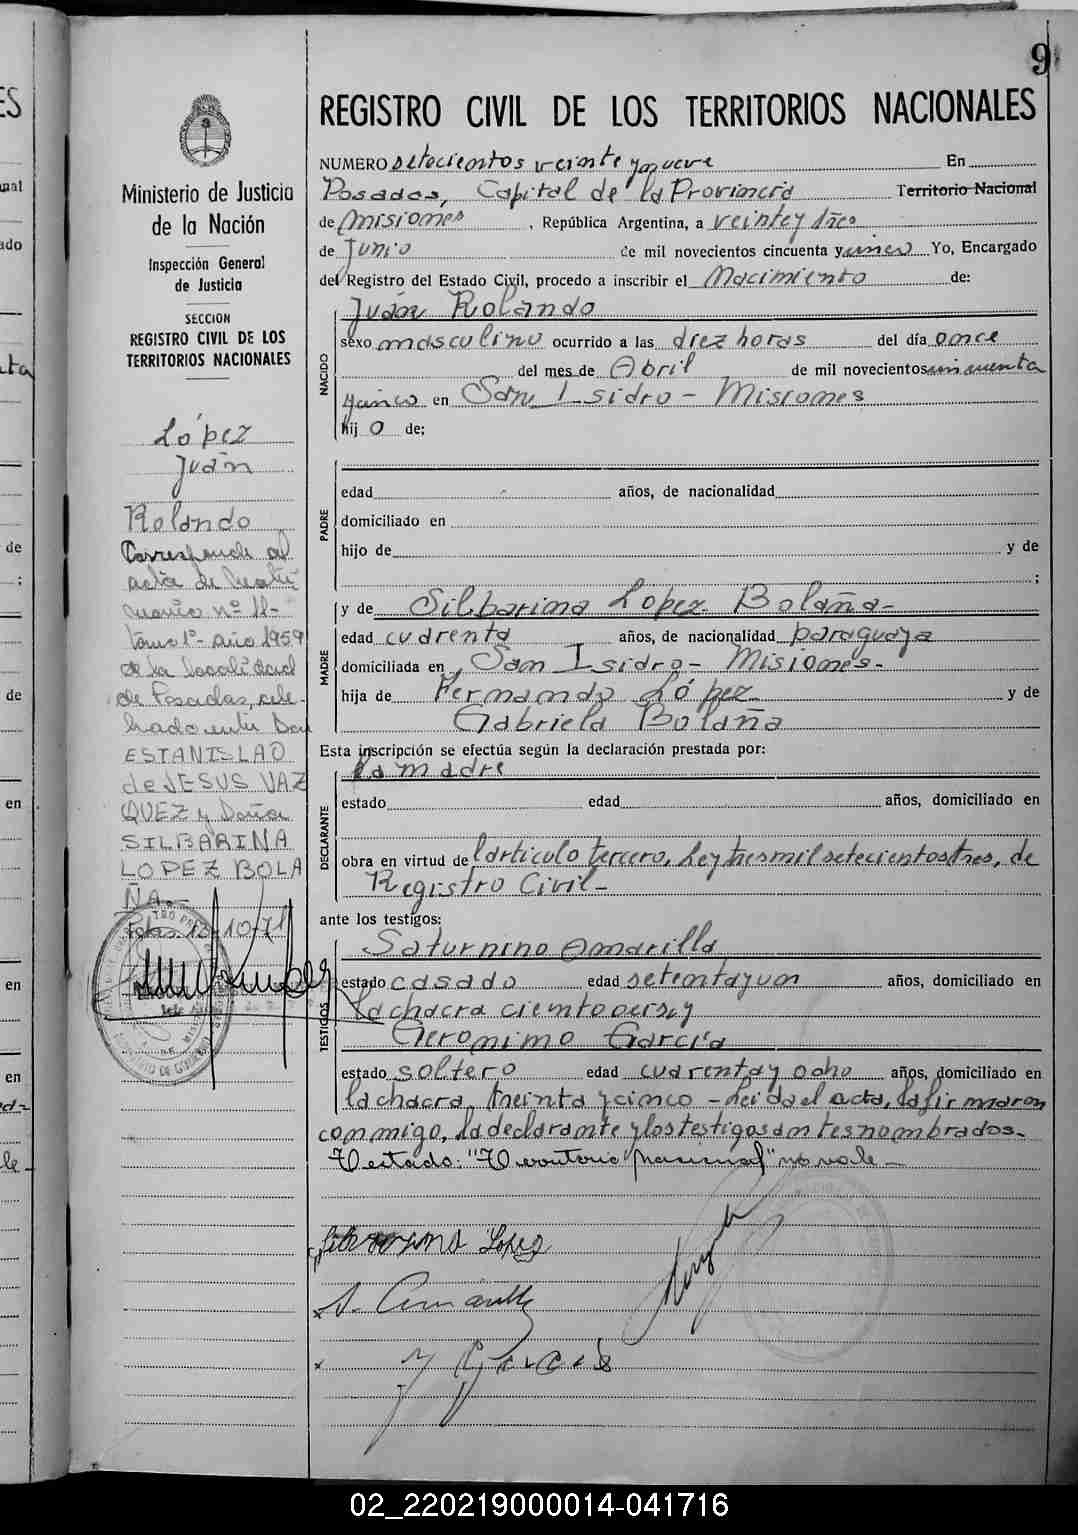 9
REGISTRO CIVIL DE LOS TERRITORIOS NACIONALES
Ministerio de Justicia
de la Nación
Inspección General
de Justicia
SECCION
REGISTRO CIVIL DE LOS
TERRITORIOS NACIONALES
López
Juán
Rolando
Corresponde al
acta de Matri
monio nº 11-
tomo 1º- año 1959
de la localidad
de Posadas, cele-
brado entre Don
ESTANISLAO
de JESUS VAZ
QUEZ y Doña
SILBARINA
LOPEZ BOLA
ÑA.-
12-10-71
NUMERO setecientos veinte y nueve En
Posadas, Capital de la Provincia Territorio Nacional
de Misiones, República Argentina, a veinte y tres
de Junio de mil novecientos cincuenta y cinco Yo, Encargado
del Registro del Estado Civil, procedo a inscribir el Nacimiento de:
NACIDO
Juán Rolando
sexo masculino ocurrido a las diez horas del día once
del mes de Abril de mil novecientos cincuenta
y cinco en San Isidro - Misiones
hij o de:
PADRE
edad años, de nacionalidad
domiciliado en
hijo de y de
;
MADRE
y de Silbarina Lopez Bolaña-
edad cuarenta años, de nacionalidad paraguaya
domiciliada en, San Isidro- Misiones-
hija de Fernando López y de
Gabriela Bolaña
Esta inscripción se efectúa según la declaración prestada por:
DECLARANTE
la madre
estado edad años, domiciliado en
obra en virtud de l artículo tercero, Ley tres mil setecientos tres, de
Registro Civil-
ante los testigos:
TESTIGOS
Saturnino Amarilla
estado casado edad setenta y un años, domiciliado en
la chacra ciento once y
Geronimo García
estado soltero edad cuarenta y ocho años, domiciliado en
la chacra treinta y cinco - Leida el acta, la firmaron
conmigo, la declarante y los testigos antes nombrados-
Testado: "Territorio Nacional" no vale-
Lopez
S. Amarilla
x
J Garcia
02_220219000014-041716